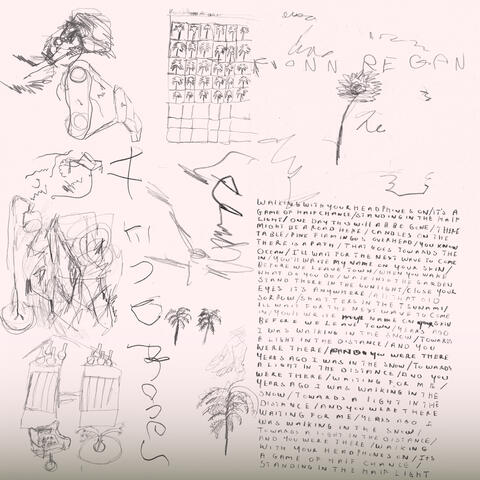 FIONN REGAN
headphones
WALKING WITH YOUR HEADPHONES ON/IT'S A
GAME OF HALF CHANCE/STANDING IN THE HALF
LIGHT/ONE DAY THIS WILL ALL BE GONE/THERE
MIGHT BE A ROAD HERE/CANDLES ON THE
TABLE/PINK FLAMINGOS OVERHEAD/YOU KNOW
THERE IS A PATH/THAT GOES TOWARDS THE
OCEAN/I'LL WAIT FOR THE NEXT WAVE TO COME
IN/YOU'LL WRITE MY NAME ON YOUR SKIN/
BEFORE WE LEAVE TOWN/WHEN YOU WAKE
WHAT DO YOU DO/WALK INTO THE GARDEN
STAND THERE IN THE SUNLIGHT/CLOSE YOUR
EYES IT'S ANYWHERE/ALL THAT OLD
SORROW/SHATTERS IN THE TSUNAMI/
I'LL WAIT FOR THE NEXT WAVE TO COME
IN/YOU'LL WRITE NAME ON YOUR SKIN
BEFORE WE LEAVE TOWN/YEARS AGO
I WAS WALKING IN THE SNOW/TOWARDS
A LIGHT IN THE DISTANCE/AND YOU
WERE THERE/AND YOU WERE THERE
YEARS AGO I WAS IN THE SNOW/TOWARDS
A LIGHT IN THE DISTANCE/AND YOU
WERE THERE/WAITING FOR ME/
YEARS AGO I WAS WALKING IN THE
SNOW/TOWARDS A LIGHT IN THE
DISTANCE/AND YOU WERE THERE
WAITING FOR ME/YEARS AGO I
WAS WALKING IN THE SNOW/
TOWARDS A LIGHT IN THE DISTANCE/
AND YOU WERE THERE/WALKING
WITH YOUR HEADPHONES ON/ITS
A GAME OF HALF CHANCE/
STANDING IN THE HALF LIGHT